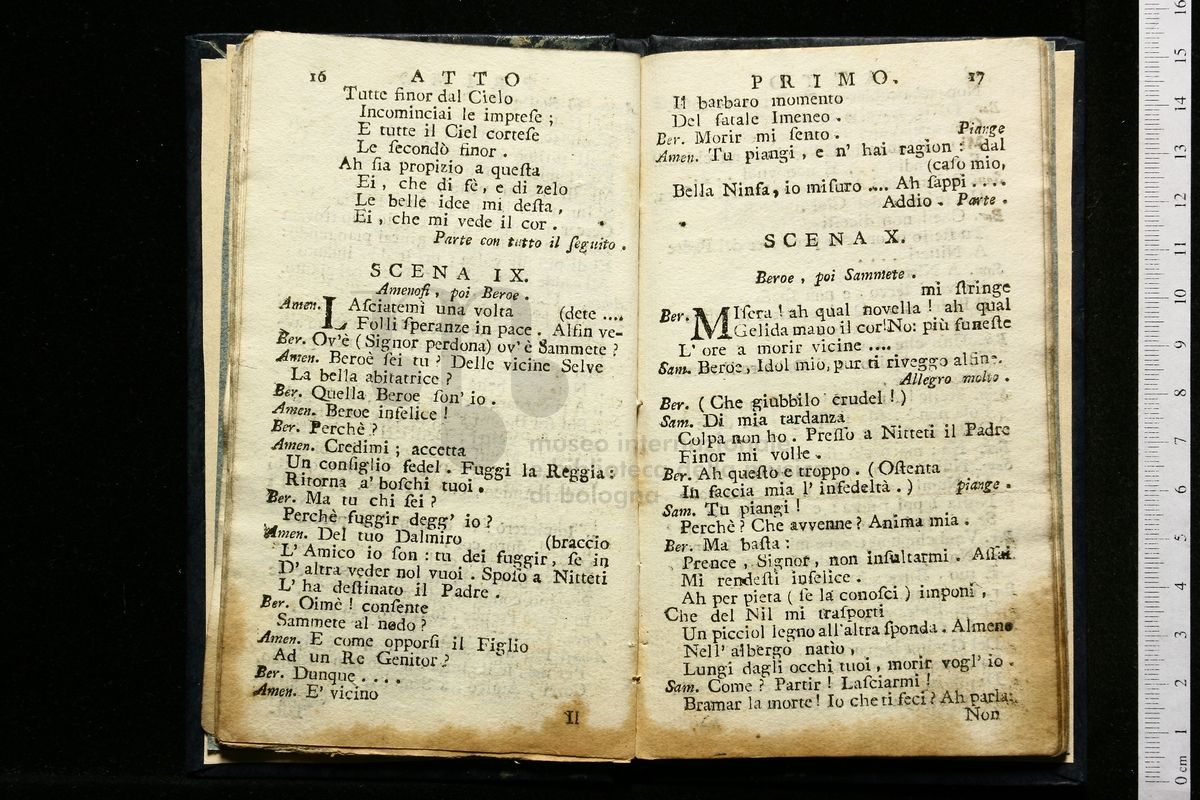 16 ATTO
Tutte finor dal Cielo
Incominciai le impreſe ;
E tutte il Ciel corteſe
Le ſecondò finor .
Ah ſia propizio a queſta
Ei , che di fè, e di zelo
Le belle idee mi deſta ,
Ei , che mi vede il cor .
Parte con tutto il ſeguito .
SCENA IX.
Amenofi , poi Beroe .
Amen. LAſciatemi una volta (dete ....
Folli ſperanze in pace . Alfin ve-
Ber. Ov'è ( Signor perdona) ov' è Sammete ?
Amen. Beroè ſei tu ? Delle vicine Selve
La bella abitatrice ?
Ber. Quella Beroe ſon' io .
Amen. Beroe infelice !
Ber. Perchè ?
Amen. Credimi ; accetta
Un conſiglio fedel . Fuggi la Reggia :
Ritorna a' boſchi tuoi .
Ber. Ma tu chi ſei ?
Perchè fuggir degg' io ?
Amen. Del tuo Dalmiro (braccio
L' Amico io ſon : tu dei fuggir, ſe in
D' altra veder nol vuoi . Spoſo a Nitteti
L' ha deſtinato il Padre .
Ber. Oimè ! conſente
Sammete al nodo ?
Amen. E come opporſi il Figlio
Ad un Re Genitor ?
Ber. Dunque . . . .
Amen. E' vicino
Il
PRIMO. 17
Il barbaro momento
Del fatale Imeneo .
Ber. Morir mi ſento . Piange
Amen. Tu piangi , e n' hai ragion : dal
(caſo mio,
Bella Ninfa, io miſuro .... Ah ſappi ....
Addio . Parte .
SCENA X.
Beroe , poi Sammete .
mi ſtringe
Ber. MIſera ! ah qual novella ! ah qual
Gelida mano il cor! No: più funeſte
L' ore a morir vicine ....
Sam. Beroe, Idol mio, pur ti riveggo alfine.
Allegro molto .
Ber. ( Che giubbilo crudel ! )
Sam. Di mia tardanza
Colpa non ho . Preſſo a Nitteti il Padre
Finor mi volle .
Ber. Ah queſto e troppo . ( Oſtenta
In faccia mia l' infedeltà . ) piange .
Sam. Tu piangi !
Perchè ? Che avvenne ? Anima mia .
Ber. Ma baſta :
Prence , Signor , non inſultarmi . Aſſai
Mi rendeſti infelice .
Ah per pieta ( ſe la conoſci ) imponi ,
Che del Nil mi traſporti
Un picciol legno all'altra ſponda . Almeno
Nell' albergo natio ,
Lungi dagli occhi tuoi , morir vogl' io .
Sam. Come ? Partir ! Laſciarmi !
Bramar la morte ! Io che ti feci ? Ah parla:
Non
museo internazionale
e biblioteca della
di bologna
0 cm 1 2 3 4 5 6 7 8 9 10 11 12 13 14 15 16